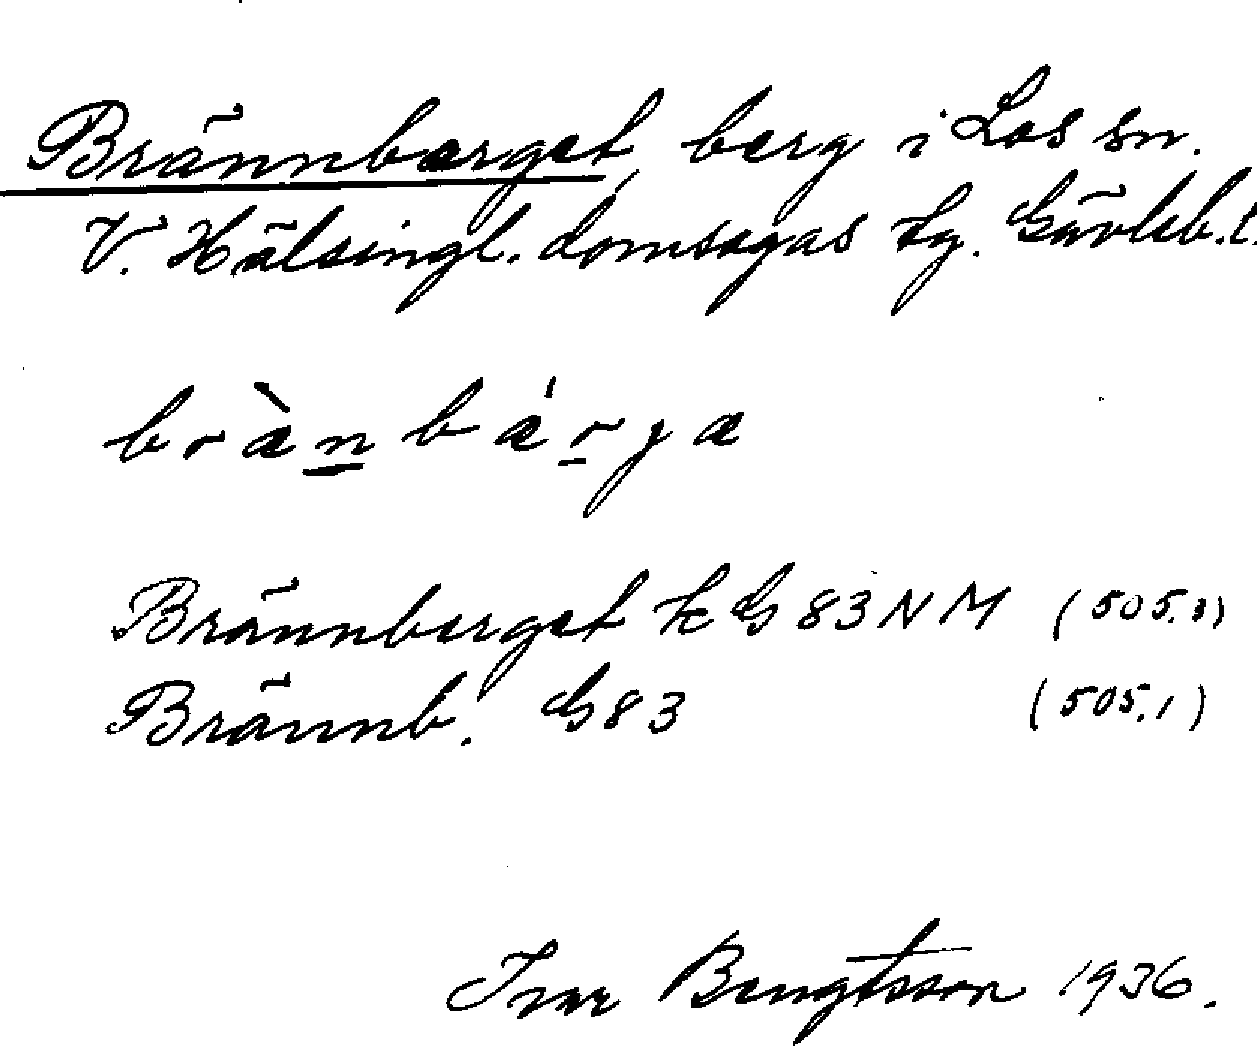 Brännberget, berg i Los sn.
V. Hälsingl. domsagas tg. Gävleb. l.
brànbárja
Brännberget k G 83 NM (505.3)
Brännb. G 83 (505.1)
Ivar Bengtsson 1936.